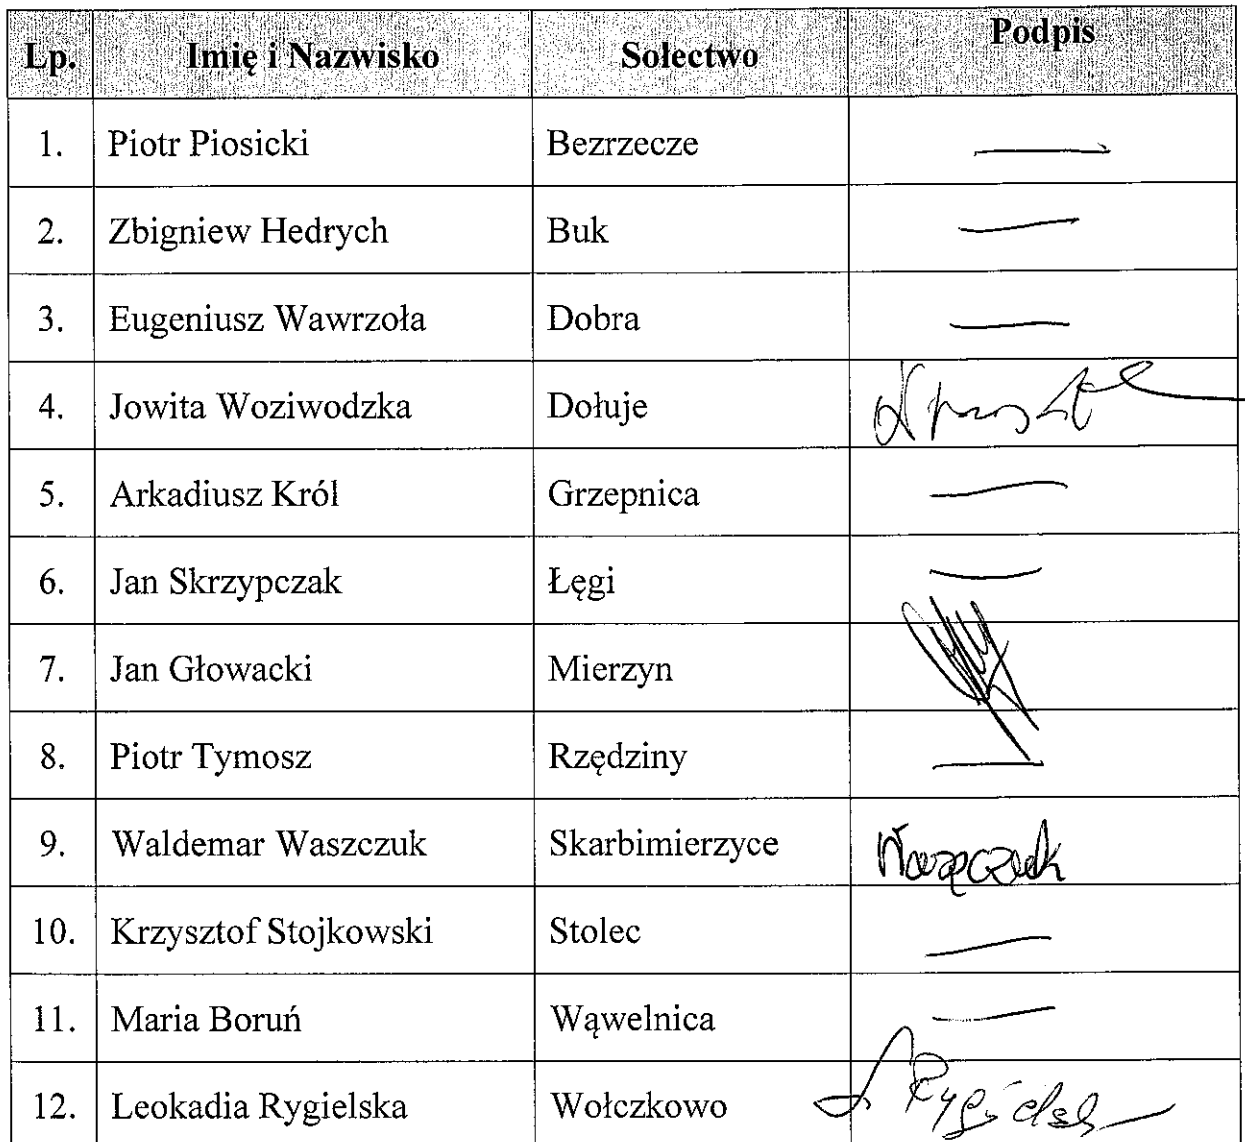 Lp. Imię i Nazwisko Sołectwo Podpis
1. Piotr Piosicki Bezrzecze
2. Zbigniew Hedrych Buk
3. Eugeniusz Wawrzoła Dobra
4. Jowita Woziwodzka Dołuje
5. Arkadiusz Król Grzepnica
6. Jan Skrzypczak Łęgi
7. Jan Głowacki Mierzyn
8. Piotr Tymosz Rzędziny
9. Waldemar Waszczuk Skarbimierzyce
10. Krzysztof Stojkowski Stolec
11. Maria Boruń Wąwelnica
12. Leokadia Rygielska Wołczkowo